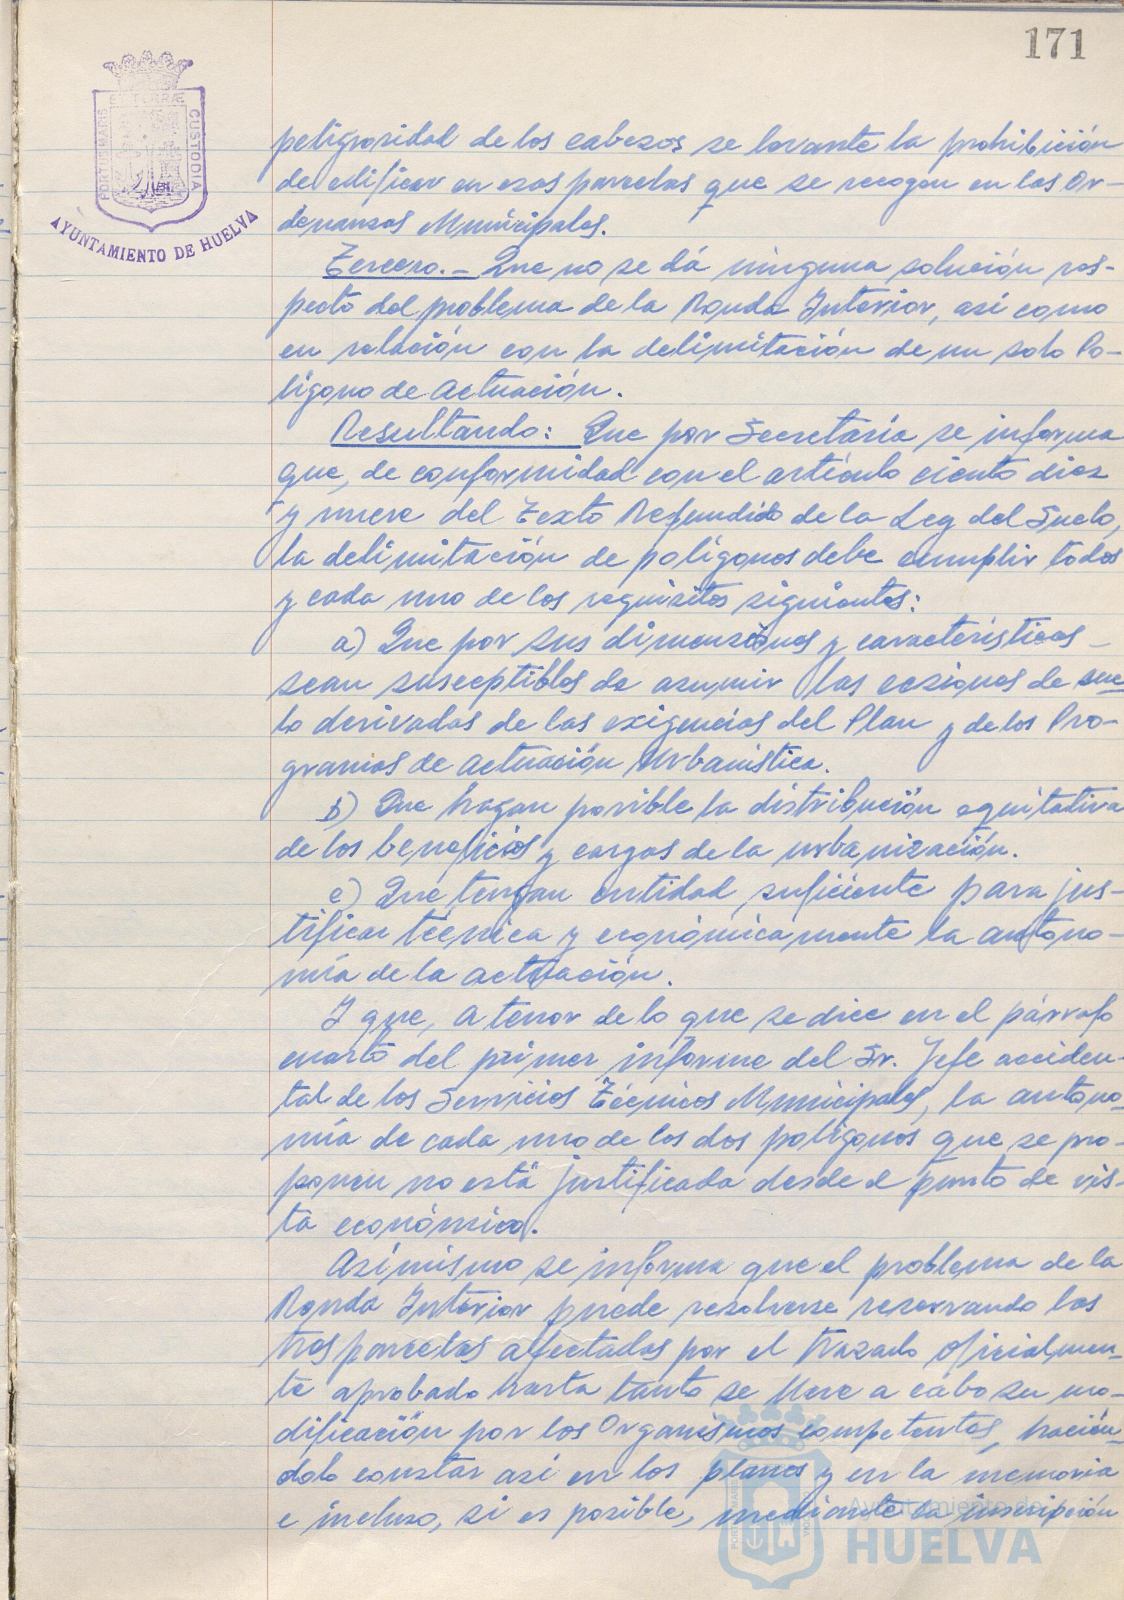 171
PORTUS MARIS
ET TERRÆ
CUSTODIA
AYUNTAMIENTO DE HUELVA
peligrosidad de los cabezos se levante la prohibición
de edificar en esas parcelas que se recogen en las Or-
denanzas Municipales.
Tercero.- Que no se dá ninguna solución res-
pecto del problema de la Ronda Interior, así como
en relación con la delimitación de un solo Po-
lígono de Actuación.
Resultando: Que por Secretaría se informa
que, de conformidad con el artículo ciento diez
y nueve del Texto Refundido de la Ley del Suelo,
la delimitación de polígonos debe cumplir todos
y cada uno de los requisitos siguientes:
a) Que por sus dimensiones y características
sean susceptibles de asumir las cesiones de sue-
lo derivadas de las exigencias del Plan y de los Pro-
gramas de Actuación Urbanística.
b) Que hagan posible la distribución equitativa
de los beneficios y cargas de la urbanización.
c) Que tengan entidad suficiente para jus-
tificar técnica y económicamente la autono-
mía de la actuación.
Y que, a tenor de lo que se dice en el párrafo
cuarto del primer informe del Sr. Jefe acciden-
tal de los Servicios Técnicos Municipales, la autono-
mía de cada uno de los dos polígonos que se pro-
ponen no está justificada desde el punto de vis-
ta económico.
Asímismo se informa que el problema de la
Ronda Interior puede resolverse reservando las
tres parcelas afectadas por el trazado oficialmen-
te aprobado hasta tanto se lleve a cabo su mo-
dificación por los Organismos competentes, hacién-
dolo constar así en los planos y en la memoria
e incluso, si es posible, mediante la inscripción
Ayuntamiento de
HUELVA